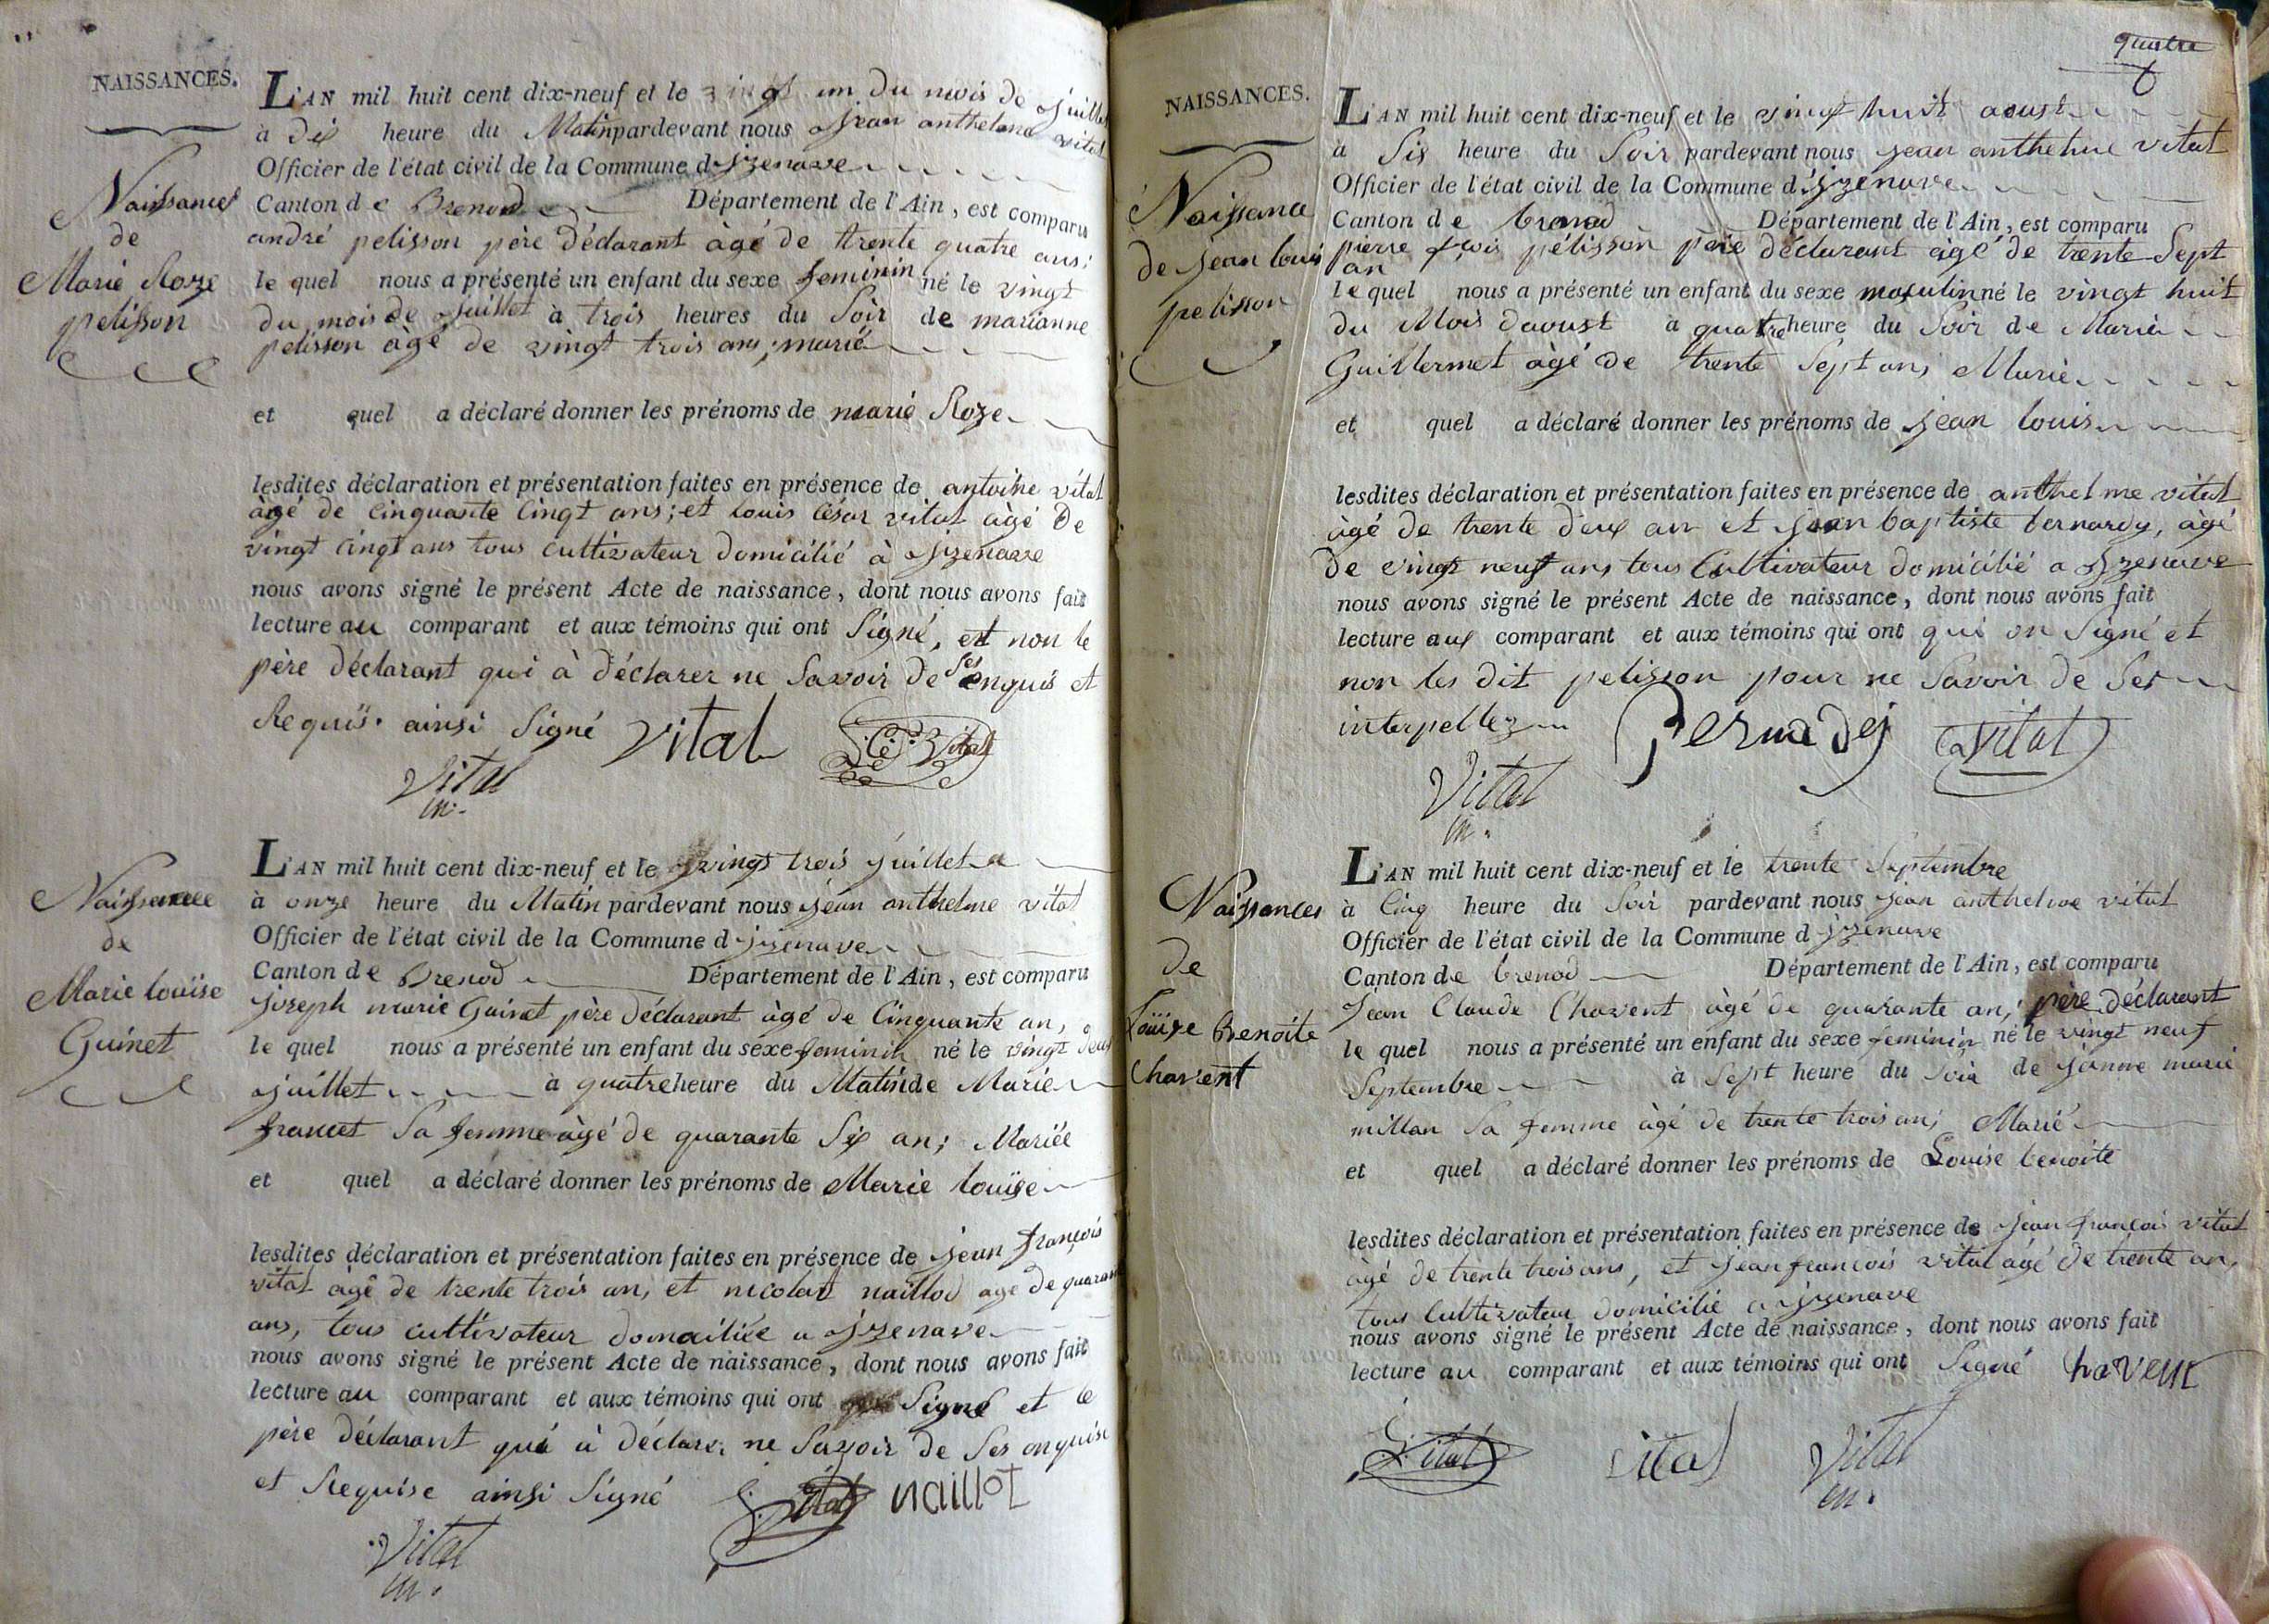 NAISSANCES.
Naissance
de
Marie Roze
pelisson
L'AN mil huit cent dix-neuf et le vingt un du mois de juillet
à dix heure du Matin pardevant nous jean anthelme vital
Officier de l'état civil de la Commune d'izenave
Canton de Brenod Département de l'Ain, est comparu
andré pelisson père déclarant âgé de trente quatre ans;
le quel nous a présenté un enfant du sexe feminin né le vingt
du mois de juillet à trois heures du Soir de marianne
pelisson âgé de vingt trois ans, marié
et quel a déclaré donner les prénoms de marie Roze
lesdites déclaration et présentation faites en présence de antoine vital
âgé de cinquante cingt ans; et louis césar vital âgé de
vingt cingt ans tous cultivateur domicilié à izenave
nous avons signé le présent Acte de naissance, dont nous avons fait
lecture au comparant et aux témoins qui ont signé, et non le
père déclarant qui à déclarer ne savoir de ses enquis et
Requis. ainsi signé Vital Vital
Vital
m.
Naissance
de
Marie louise
Guinet
L'AN mil huit cent dix-neuf et le vingt trois juillet a
à onze heure du Matin pardevant nous jean anthelme vital
Officier de l'état civil de la Commune d izenave
Canton de Brenod Département de l'Ain, est comparu
joseph marie Guinet père déclarant âgé de Cinquante an,
le quel nous a présenté un enfant du sexe feminin né le vingt deux
juillet à quatre heure du Matin de Marie
francet sa femme âgé de quarante six an; Mariée
et quel a déclaré donner les prénoms de Marie louise
lesdites déclaration et présentation faites en présence de jean françois
vital âgé de trente trois an, et nicolas naillod age de quarante
ans, tous cultivateur domiciliée a izenave
nous avons signé le présent Acte de naissance, dont nous avons fait
lecture au comparant et aux témoins qui ont Signé et le
père déclarant qui à déclarer ne savoir de ses enquise
et Requise ainsi signé Vital naillot
Vital
m.
quatre
NAISSANCES.
Naissance
de jean louis
pelisson
L'AN mil huit cent dix-neuf et le vingt huit aoust
à Six heure du Soir pardevant nous jean anthelme vital
Officier de l'état civil de la Commune d'izenave
Canton de brenod Département de l'Ain, est comparu
pierre fçois pélisson père déclarant âgé de trente Sept
an
le quel nous a présenté un enfant du sexe masculin né le vingt huit
du Mois daoust à quatre heure du Soir de Marie
Guillermet âgé de trente Sept ans Marié
et quel a déclaré donner les prénoms de jean louis
lesdites déclaration et présentation faites en présence de anthelme vital
âgé de trente deux an et jean baptiste bernardy, âgé
de vingt neuf ans tous Cultivateur domicilié a izenave
nous avons signé le présent Acte de naissance, dont nous avons fait
lecture aux comparant et aux témoins qui ont qui on signé et
non les dit pelisson pour ne Savoir de Ser
interpellez Vital
Vital
m.
Naissances
de
Louise Benoite
Chavent
L'AN mil huit cent dix-neuf et le trente Septembre
à Cinq heure du Soir pardevant nous jean anthelme vital
Officier de l'état civil de la Commune d izenave
Canton de brenod Département de l'Ain, est comparu
Jean Claude Chavent âgé de quarante an; père déclarant
le quel nous a présenté un enfant du sexe feminin né le vingt neuf
Septembre à Sept heure du Soir de jeanne marie
millan sa femme âgé de trente trois an; Marié
et quel a déclaré donner les prénoms de Louise benoite
lesdites déclaration et présentation faites en présence de jean françois vital
âgé de trente trois ans, et jean françois vital âgé de trente an,
tous Cultivateur domicilié a izenave
nous avons signé le présent Acte de naissance, dont nous avons fait
lecture au comparant et aux témoins qui ont Signé havent
Vital vital Vital
m.